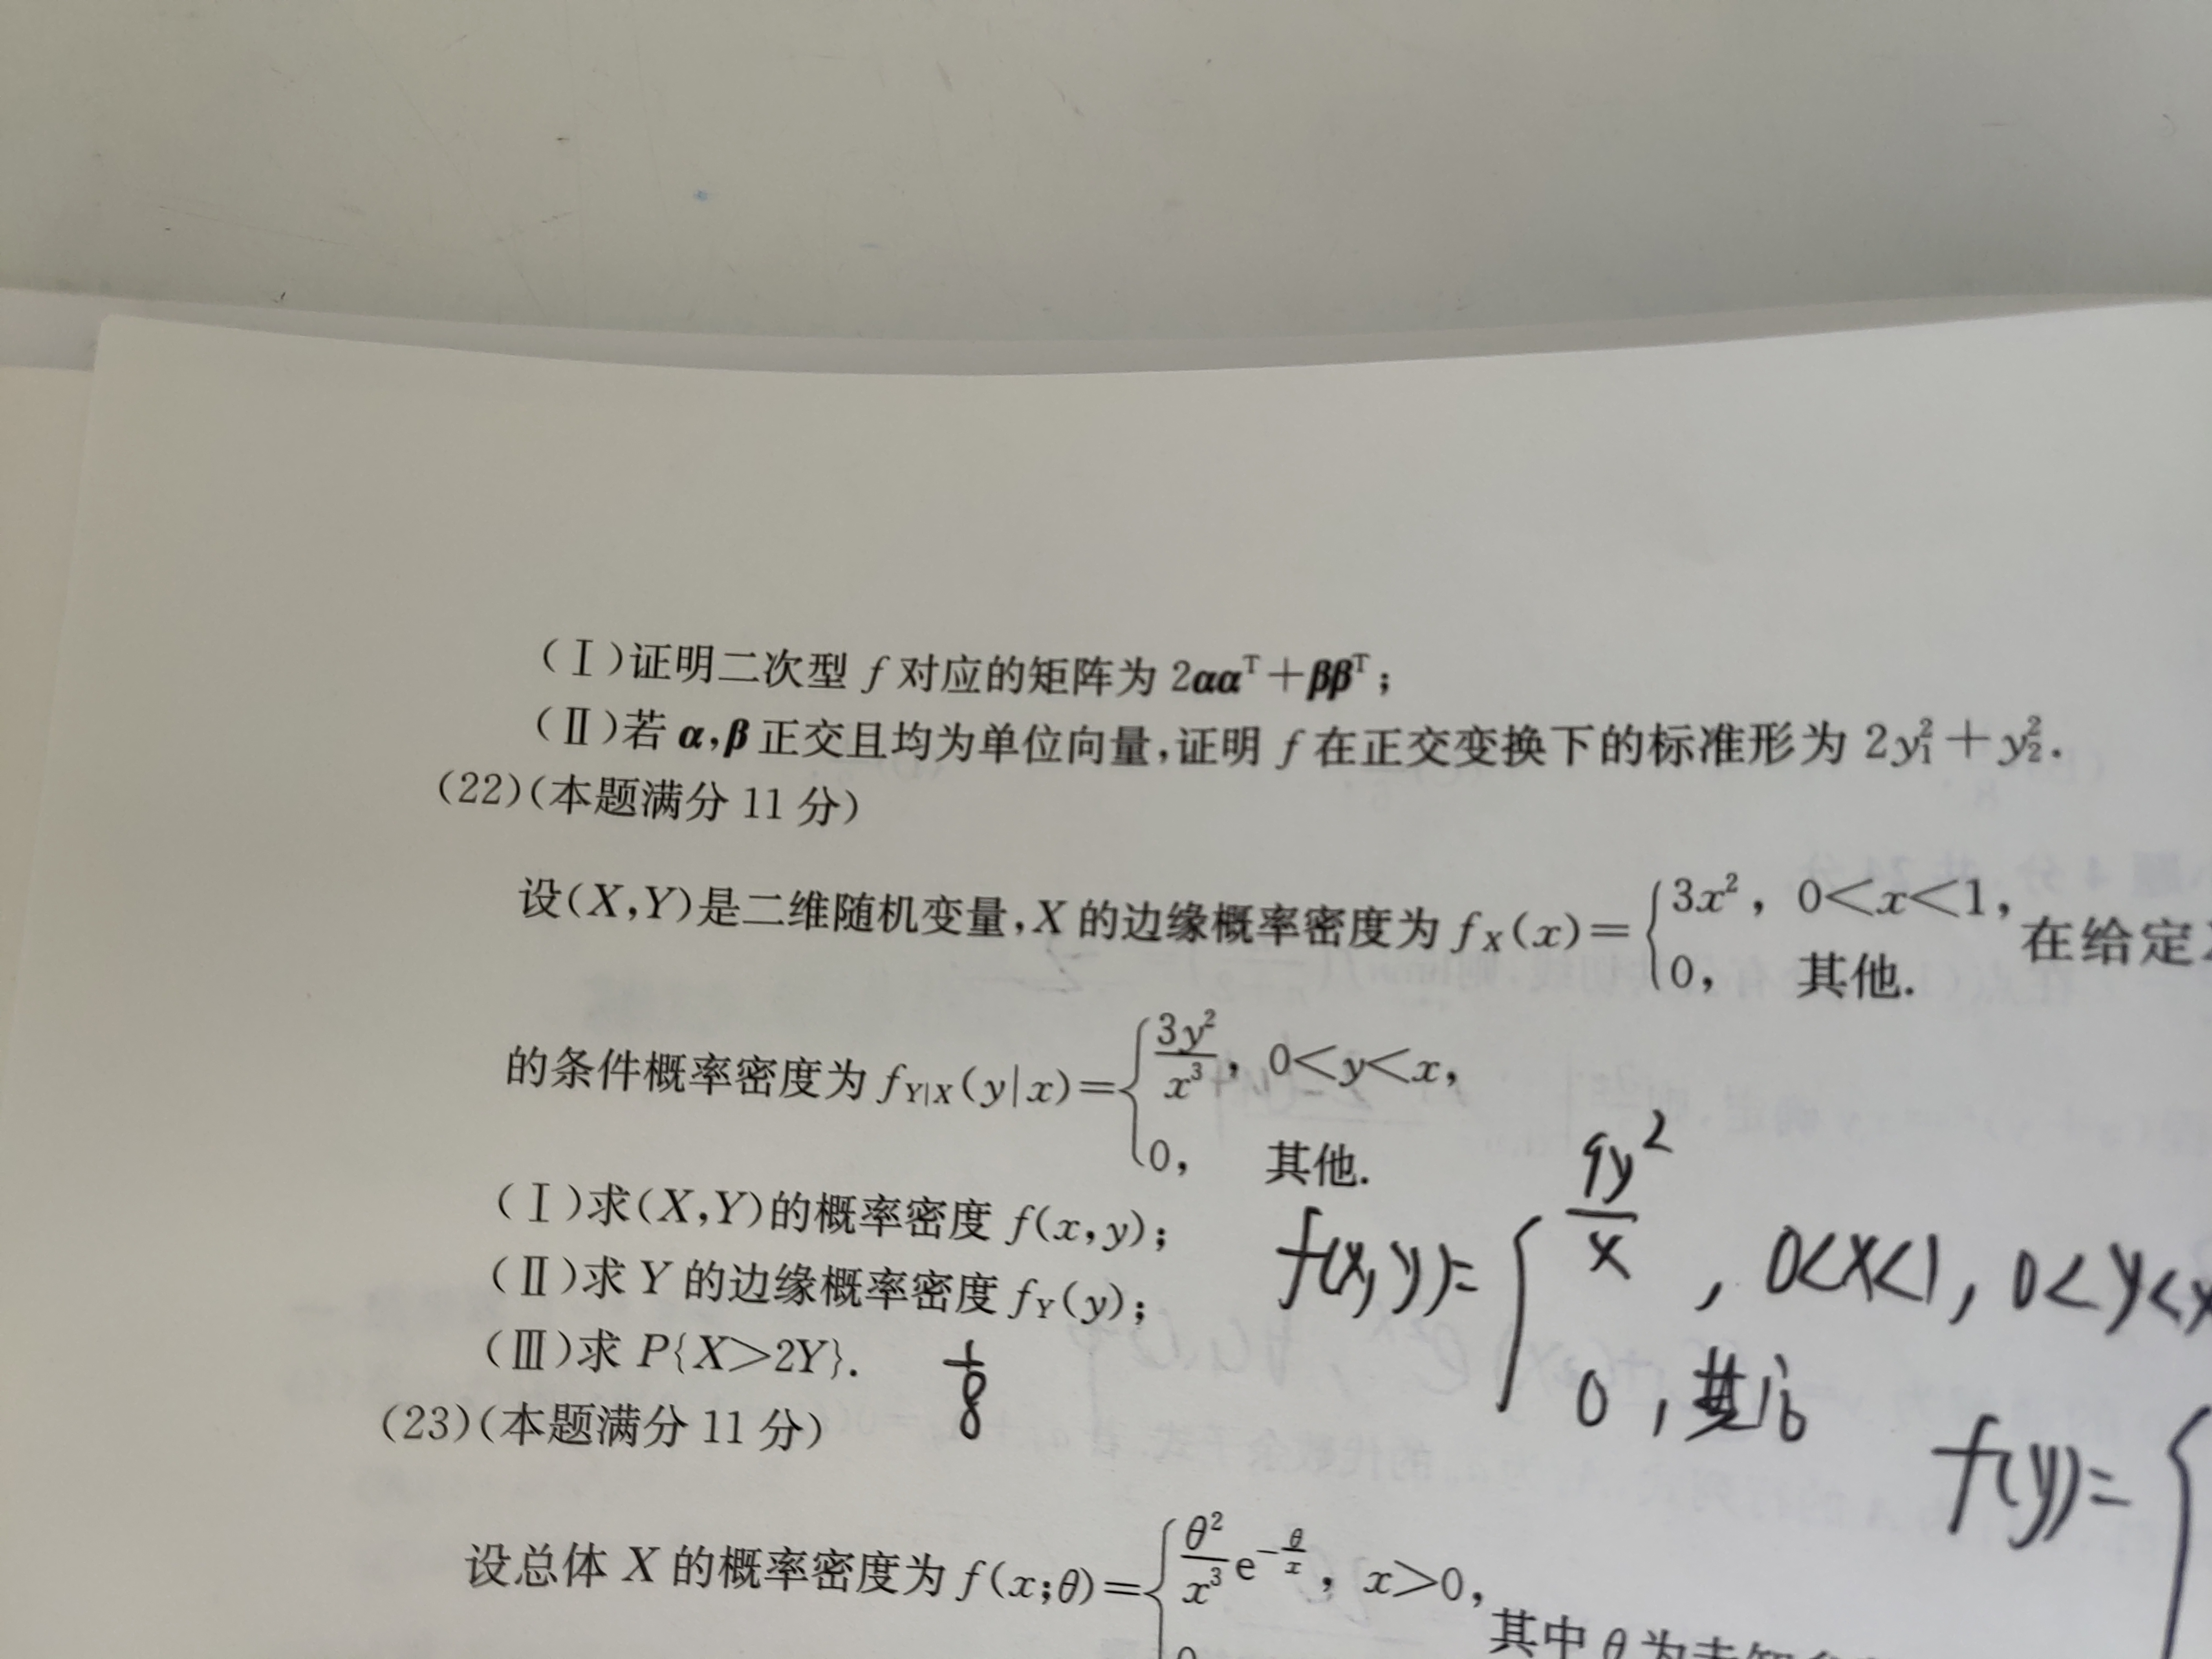 (Ⅰ)证明二次型 f 对应的矩阵为 2αα^T+ββ^T;
(Ⅱ)若 α,β 正交且均为单位向量,证明 f 在正交变换下的标准形为 2y₁²+y₂².
(22)(本题满分 11 分)
设(X,Y)是二维随机变量,X 的边缘概率密度为 f_X(x)={3x², 0<x<1, 0, 其他. 在给定
的条件概率密度为 f_{Y|X}(y|x)={3y²/x³, 0<y<x, 0, 其他.
(Ⅰ)求(X,Y)的概率密度 f(x,y);
f(x,y)={9y²/x , 0<x<1, 0<y<x 0, 其他
(Ⅱ)求 Y 的边缘概率密度 f_Y(y);
(Ⅲ)求 P{X>2Y}. 1/8
f(y)={
(23)(本题满分 11 分)
设总体 X 的概率密度为 f(x;θ)={θ²/x³ e^{-θ/x}, x>0, 其中 θ 为未知